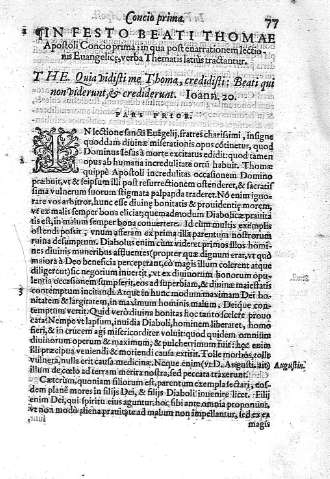 Concio prima. 77
¶ IN FESTO BEATI THOMAE
Apostoli Concio prima: in qua post enarrationem lectio-
nis Euangelicę, verba Thematis latiùs tractantur.
THE. Quia vidisti me Thoma, credidisti: Beati qui
non viderunt, & crediderunt. Ioann. 20.
PARS PRIOR.
IN lectione sancti Euāgelij, fratres charissimi, insigne
quoddam diuinæ miserationis opus cōtinetur, quod
Dominus Iesus à morte excitatus edidit: quod tamen
opus ab humana incredulitate ortū habuit. Thomæ
quippè Apostoli incredulitas occasionem Domino
præbuit, vt & seipsum illi post resurrectionem ostenderet, & sacratissi
sima vulnerum suorum stigmata palpanda traderet. Nō enim igno-
rare vos arbitror, hunc esse diuinę bonitatis & prouidentię morem,
vt ex malis semper bona eliciat; quemadmodum Diabolicæ prauita
tis est, in malum semper bona conuertere. Id cum multis exemplis
ostendi possit, vnum afferam ex prima illa parentum nostrorum
ruina desumptum. Diabolus enim cùm videret primos illos homi-
nes diuinis muneribus affluentes (propter quæ dignum erat, vt quò
maiora à Deo beneficia perceperant, eò magis illum colerent atque
diligerent) sic negotium inuertit, vt ex diuinorum honorum opu-
lentia occasionem sumpserit, eos ad superbiam, & diuinæ maiestatis
contemptum incitandi. Atque in hunc modum maximam Dei bo-
nitatem & largitatem, in maximum hominis malum, Deique con-
temptum vertit. Quid verò diuina bonitas hoc tanto scelere prouo
cata? Nempe vt lapsum, inuidia Diaboli, hominem liberaret, homo
fieri, & in crucem agi misericorditer voluit: quod quidem omnium
diuinorum operum & maximum, & pulcherrimum fuit: hoc enim
illi præcipua veniendi & moriendi causa extitit. Tolle morbos, tolle
vulnera, nulla erit causa medicinæ. Neque enim (vt D. Augusti. ait) Augustin.
illum de cœlo ad terram merita nostra, sed peccata traxerunt.
Cæterùm, quoniam filiorum est, parentum exempla sectari, eos-
dem planè mores in filijs Dei, & filijs Diaboli inuenire licet. Filij
enim Dei, qui spiritu eius aguntur, hoc sibi ante omnia proponunt,
vt non modò aliena prauitate ad malum non impellantur, sed ex ea
magis